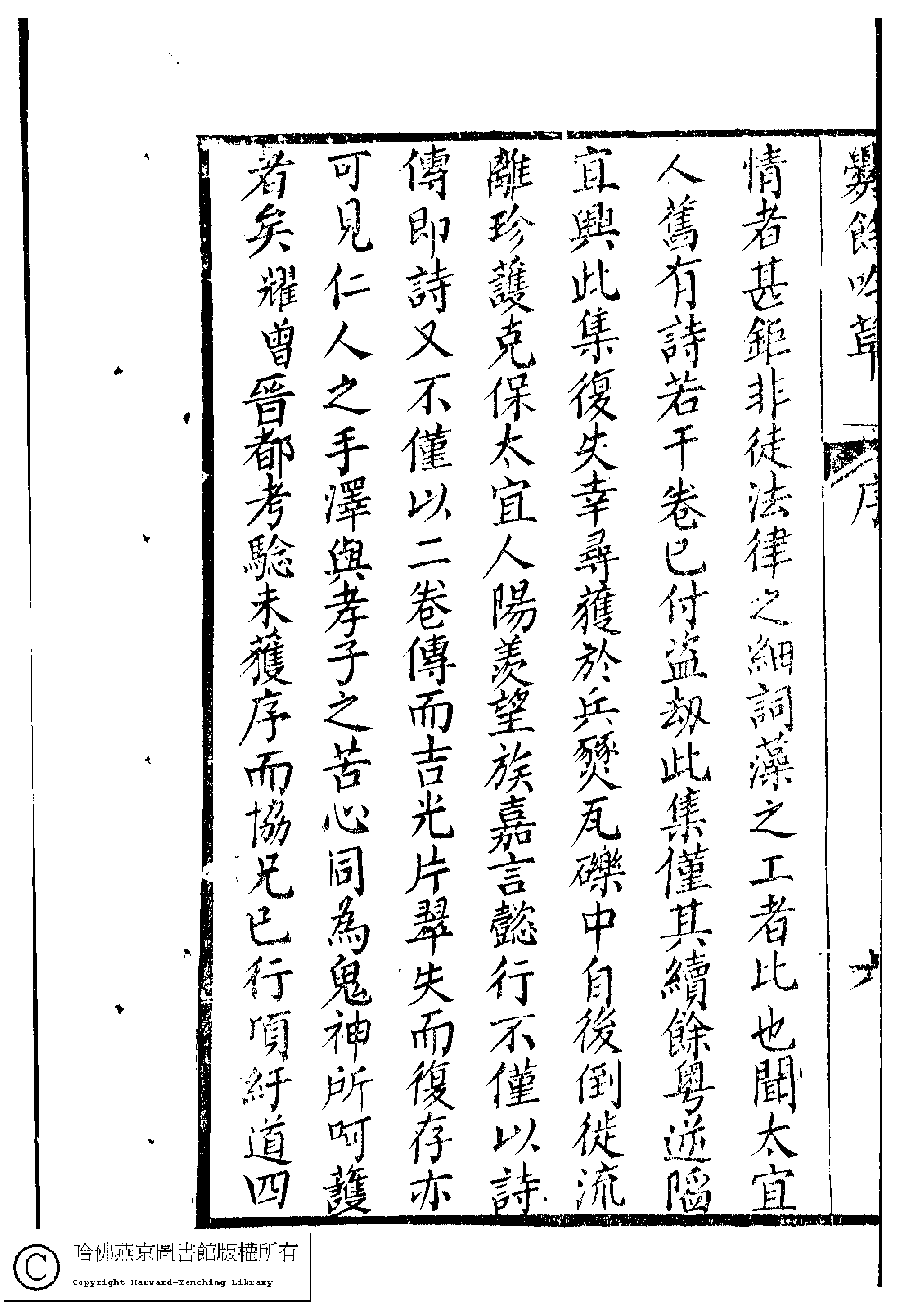 爨餘吟草
序
情者甚鉅非徒法律之細詞藻之工者比也聞太宜
人舊有詩若干卷已付盜刼此集僅其續餘粵逆陷
宜興此集復失幸尋獲於兵燹瓦礫中自後倒徙流
離珍護克保太宜人陽羨望族嘉言懿行不僅以詩
傳即詩又不僅以二卷傳而吉光片翠失而復存亦
可見仁人之手澤與孝子之苦心同為鬼神所呵護
者矣耀曾晉都考驗未獲序而協兄已行頃紆道四
哈佛燕京圖書館版權所有
Copyright Harvard-Yenching Library